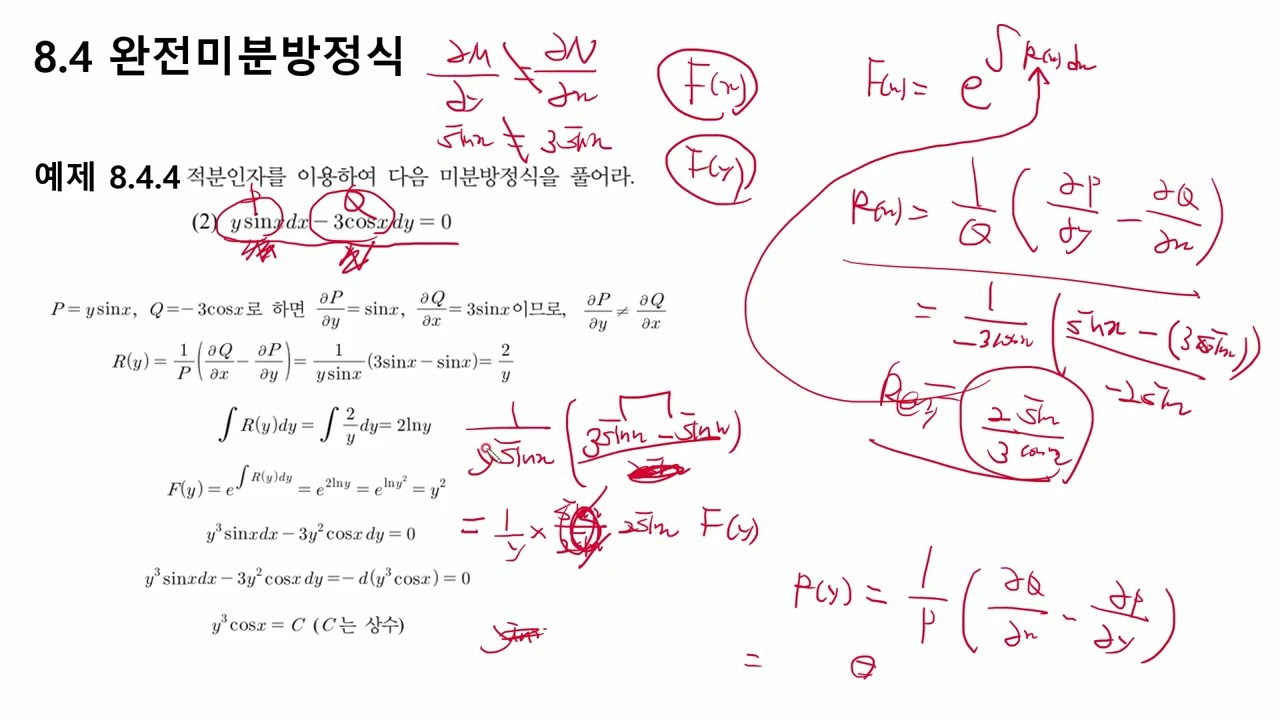 8.4 완전미분방정식
∂M/∂y = ∂N/∂x
sinx = 3sinx
F(x)
F(y)
F(x) = e^∫R(x)dx
예제 8.4.4 적분인자를 이용하여 다음 미분방정식을 풀어라.
P Q
(2) y sinx dx − 3cosx dy = 0
R(x) = 1/Q (∂P/∂y − ∂Q/∂x)
= 1/−3cosx (sinx − (3sinx))
−2sinx
2sin/3cosx
P = y sinx, Q = −3cosx로 하면 ∂P/∂y = sinx, ∂Q/∂x = 3sinx이므로, ∂P/∂y ≠ ∂Q/∂x
R(y) = 1/P (∂Q/∂x − ∂P/∂y) = 1/(y sinx) (3sinx − sinx) = 2/y
∫R(y)dy = ∫2/y dy = 2lny
1/(y sinx) (3sinx − sinx)
F(y) = e^∫R(y)dy = e^2lny = e^lny² = y²
= 1/y × 2sinx F(y)
y³sinxdx − 3y²cosx dy = 0
y³sinxdx − 3y²cosx dy = − d(y³cosx) = 0
y³cosx = C (C는 상수)
R(y) = 1/P (∂Q/∂x − ∂P/∂y)
=